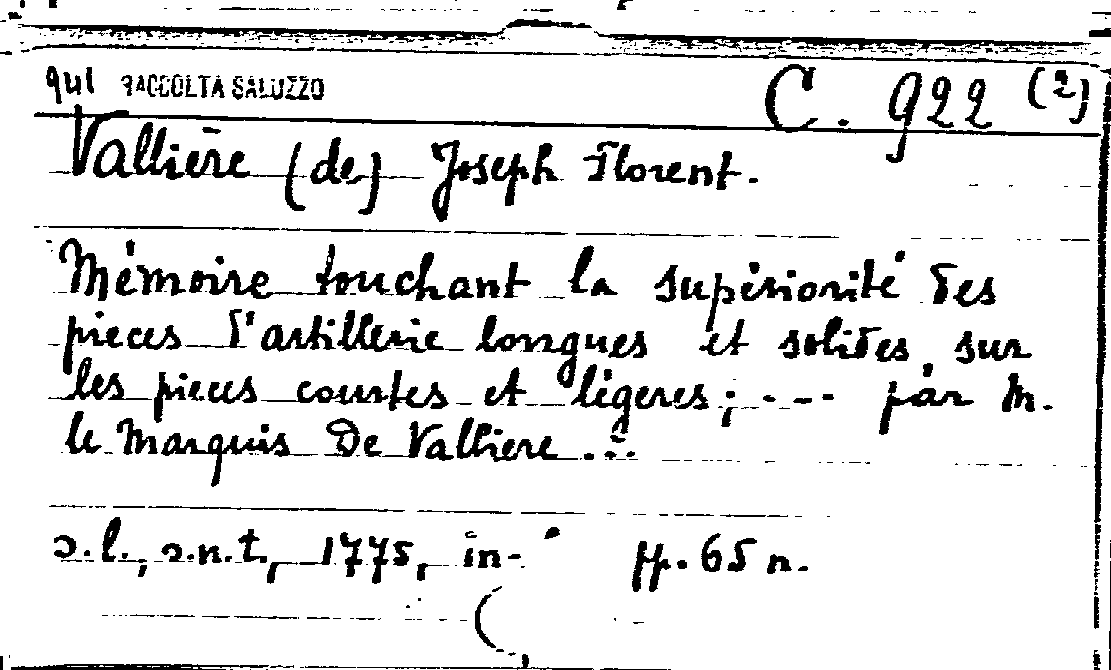 qui RACCOLTA SALUZZO C. 922 (2)
Vallière (de) Joseph Florent.
Mémoire touchant la supériorité des
pieces d'artillerie longues et solides, sur
les pieces courtes et légeres; ---- par M.
le Marquis De Valliere ...
s.l., s.n.t., 1775, in-° pp. 65 n.
(